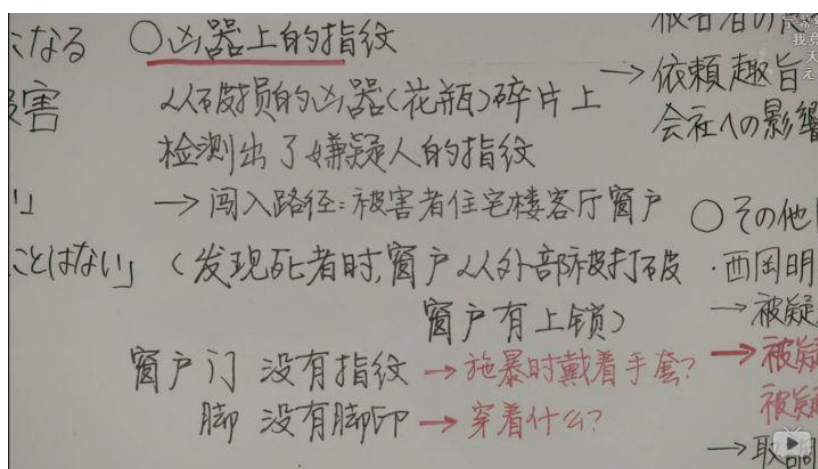 になる
害
○凶器上的指纹
从破损的凶器(花瓶)碎片上
检测出了嫌疑人的指纹
→闯入路径:被害者住宅楼客厅窗户
ことはない」
(发现死者时,窗户从外部被打破
窗户有上锁)
窗户门 没有指纹→施暴时戴着手套?
脚 没有脚印→穿着什么?
被害者の
→依頼趣旨
会社への影響
○その他
・西岡明
→被疑
→被疑
被疑
→取調